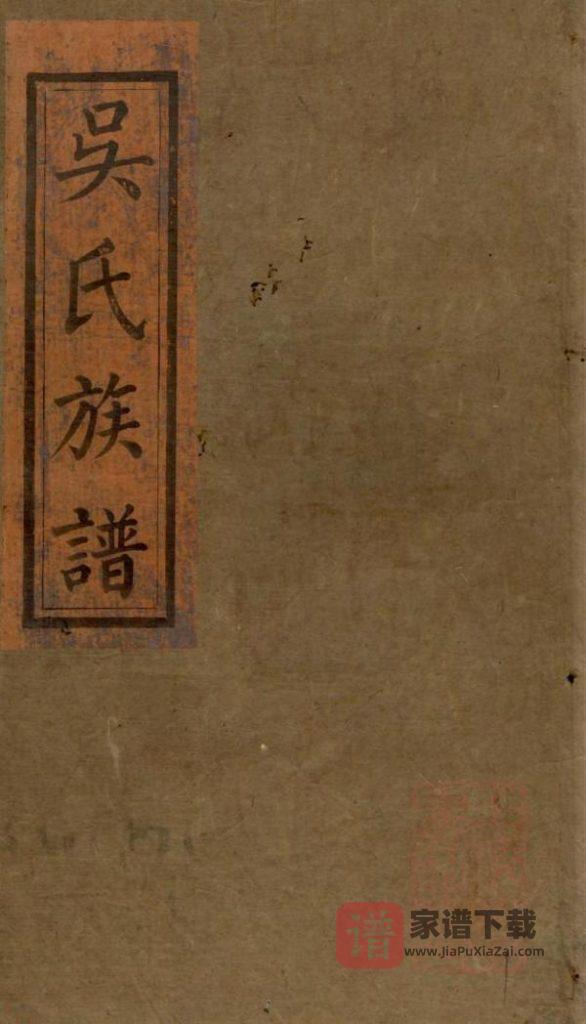 吳氏族譜
谱
家谱下载
www.JiaPuXiaZai.com